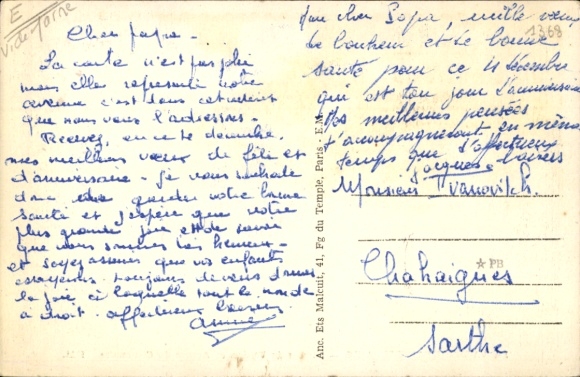 E
Vide-Torne
Cher papa -
La carte n'est pas jolie
mais elle représente notre
avenue c'est dans cet endroit
que nous vous l'adressons -
Recevez, en ce décembre
mes meilleurs vœux de fête et
d'anniversaire - Je vous souhaite
donc garder votre bonne
santé et j'espère que votre
plus grande joie est de savoir
que nous sommes très heureux -
et soyez assurés que vos enfants
essayerons toujours
la joie à laquelle tout le monde
a droit. affectueux baisers
Annie
Anc. Ets Malcuit, 41, Fg du Temple, Paris - E.M.
1368
Mon cher Papa, mille vœux
de bonheur et de bonne
santé pour ce 11 décembre
qui est ton jour d'anniversaire
Nos meilleures pensées
t'accompagneront en même
temps que d'affectueux
baisers
Jacques
Monsieur Ivanovitch.
★ PB
Chahaignes
Sarthe